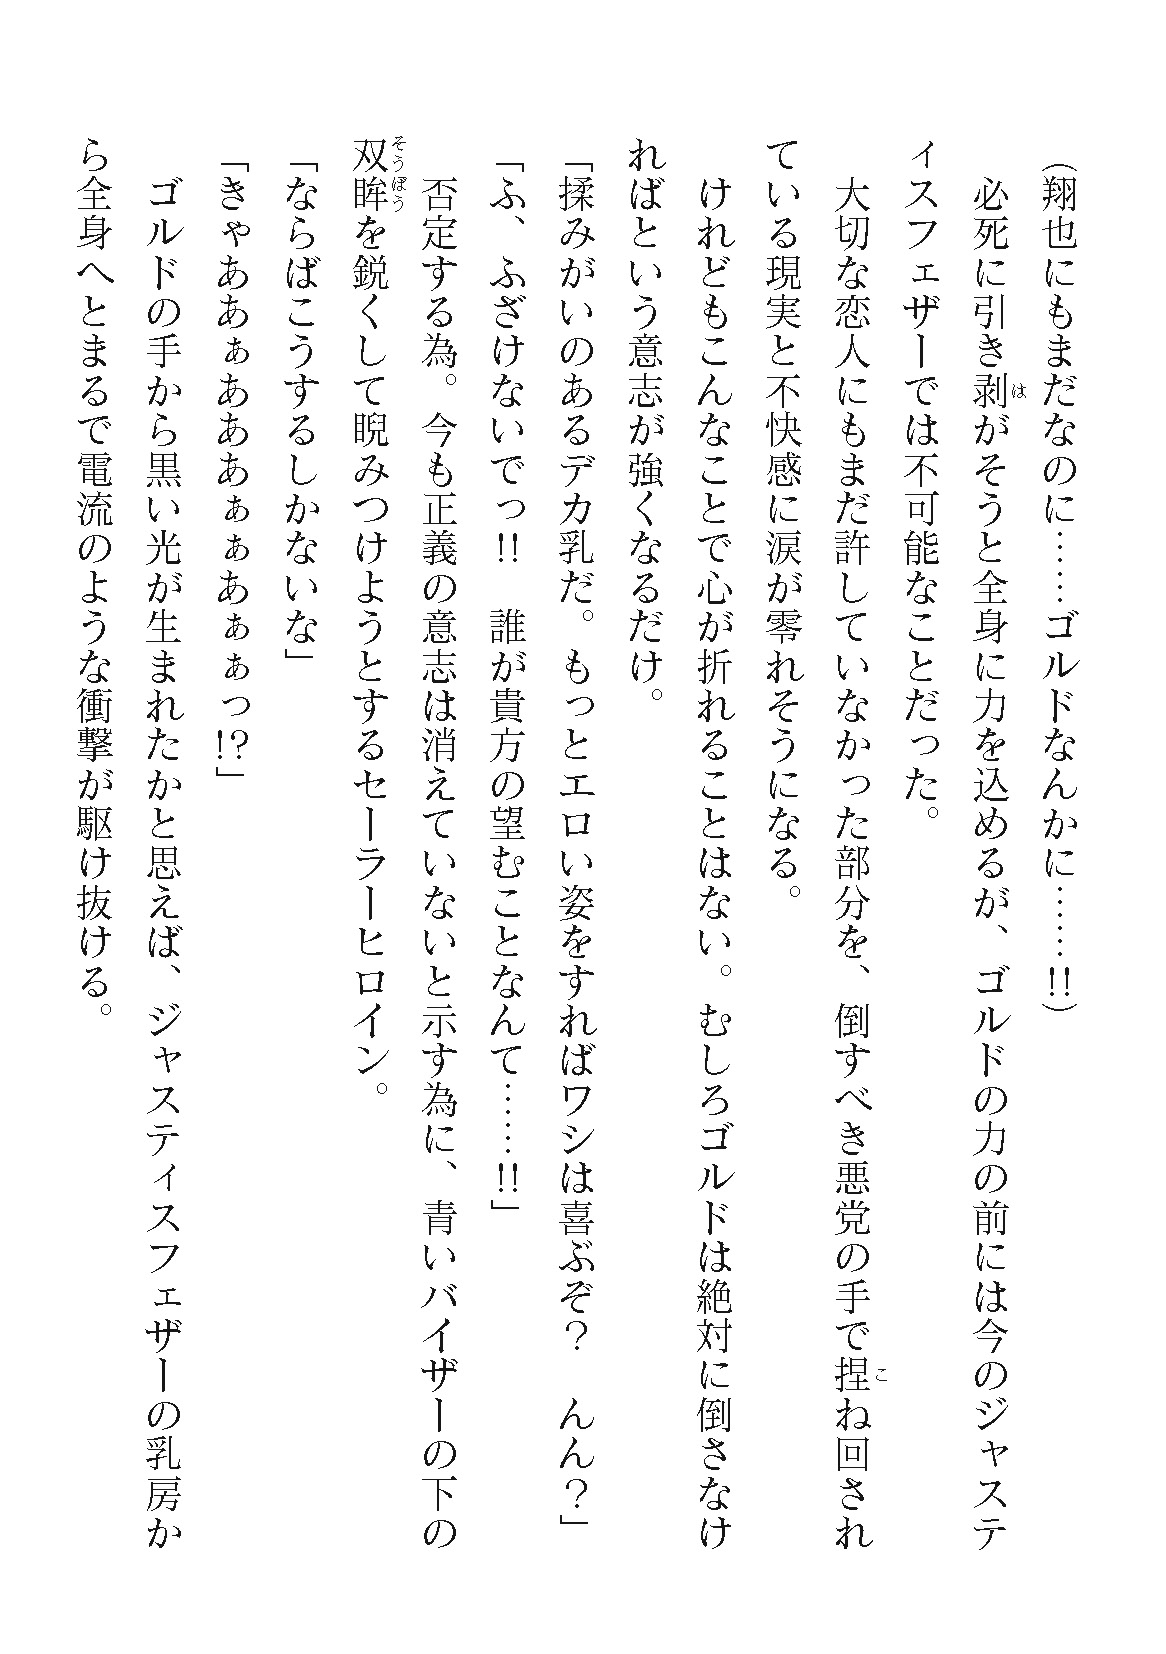 （翔也にもまだなのに……ゴルドなんかに……!!）
　必死に引き剥がそうと全身に力を込めるが、ゴルドの力の前には今のジャステ
ィスフェザーでは不可能なことだった。
　大切な恋人にもまだ許していなかった部分を、倒すべき悪党の手で捏ね回され
ている現実と不快感に涙が零れそうになる。
　けれどもこんなことで心が折れることはない。むしろゴルドは絶対に倒さなけ
ればという意志が強くなるだけ。
「揉みがいのあるデカ乳だ。もっとエロい姿をすればワシは喜ぶぞ？　んん？」
「ふ、ふざけないでっ!!　誰が貴方の望むことなんて……!!」
　否定する為。今も正義の意志は消えていないと示す為に、青いバイザーの下の
双眸を鋭くして睨みつけようとするセーラーヒロイン。
「ならばこうするしかないな」
「きゃああぁあああぁぁあぁぁっ!?」
　ゴルドの手から黒い光が生まれたかと思えば、ジャスティスフェザーの乳房か
ら全身へとまるで電流のような衝撃が駆け抜ける。